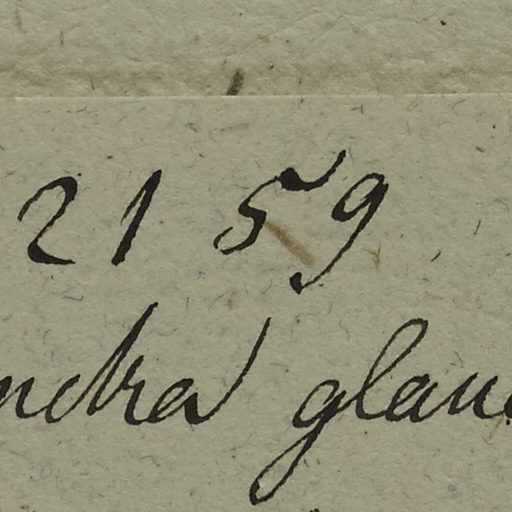 2159
netra glau